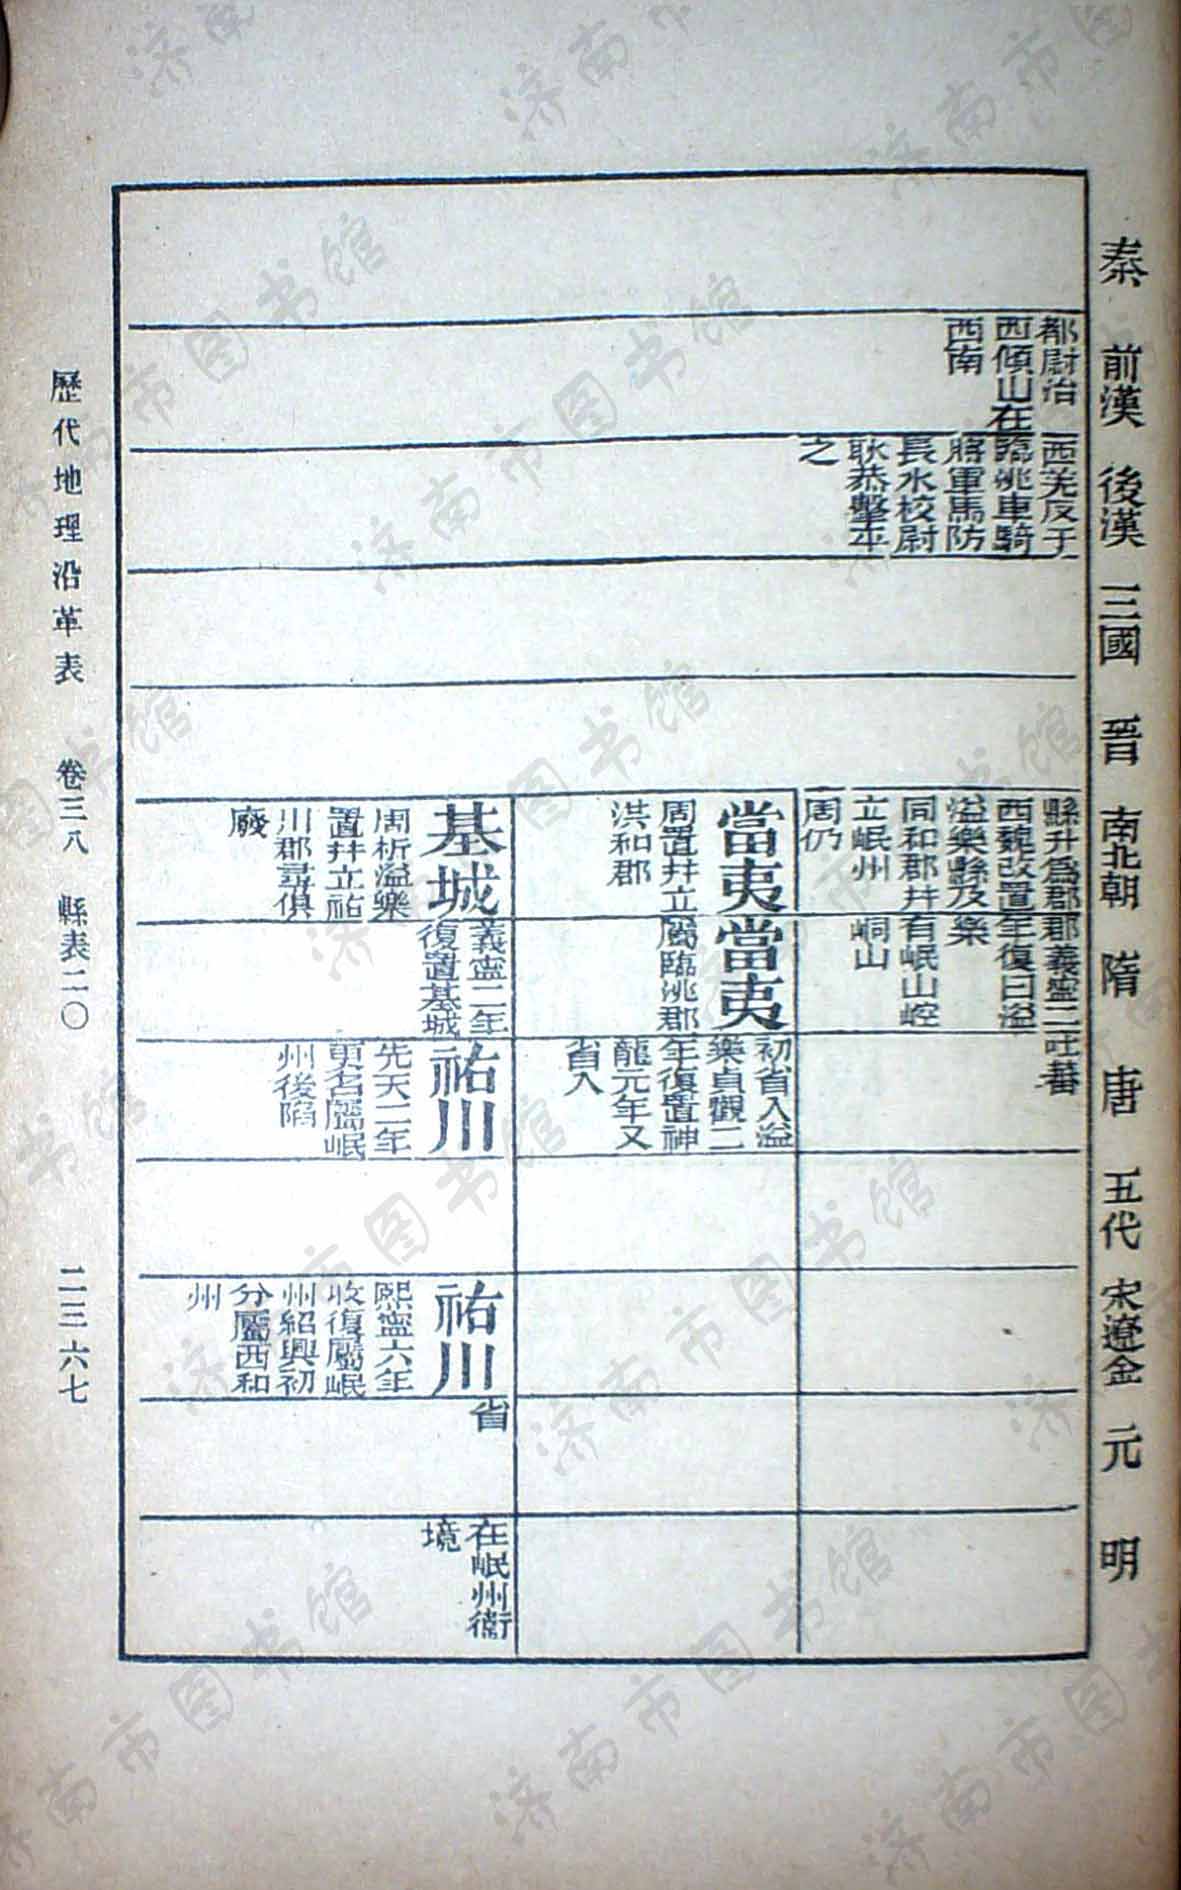 秦
前漢
後漢
三國
晉
南北朝
隋
唐
五代
宋遼金
元
明
都尉治
西傾山在
西南
西羌反于
臨洮車騎
將軍馬防
長水校尉
耿恭擊平
之
縣升爲郡
西魏改置
溢樂縣及
同和郡幷
立岷州
周仍
郡義寧二
年復曰溢
樂
有岷山崆
峒山
吐蕃
當夷
周置幷立
洪和郡
當夷
屬臨洮郡
初省入溢
樂貞觀二
年復置神
龍元年又
省入
基城
周析溢樂
置幷立祐
川郡尋俱
廢
義寧二年
復置基城
祐川
先天二年
更名屬岷
州後陷
祐川
熙寧六年
收復屬岷
州紹興初
分屬西和
州
省
在岷州衞
境
歷代地理沿革表 卷三八 縣表二〇 二三六七
济南市图书馆